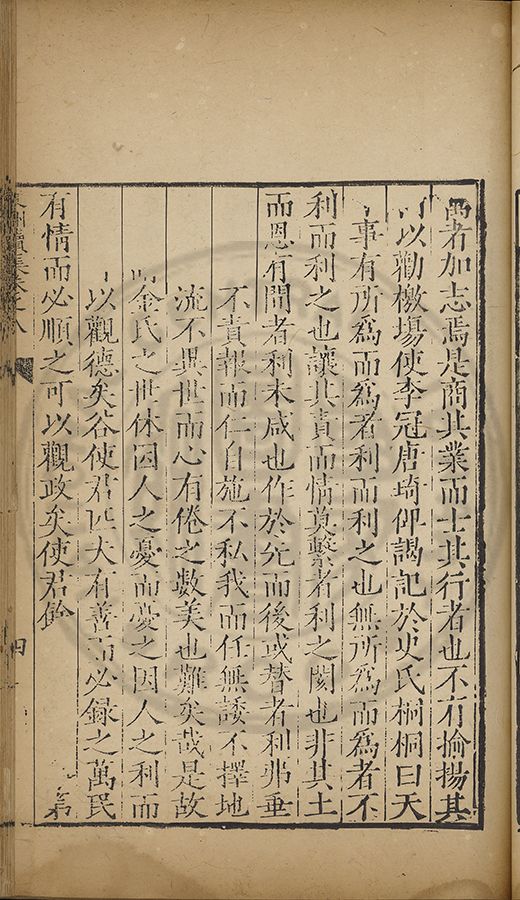 者加志焉是商其業而士其行者也不有揄揚其
以勸檄場使李冠唐琦仰謁記於史氏桐桐曰天
事有所為而為者利而利之也無所為而為者不
利而利之也讓其責而情奠繫者利之閡也非其土
而恩有間者利未咸也作於先而後或替者利弗垂
不責報而仁自施不私我而任無諉不擇地
流不異世而心有倦之數美也難矣哉是故
金氏之世休因人之憂而憂之因人之利而
以觀德矣谷使君匹夫有善而必録之萬民
有情而必順之可以觀政矣使君
四